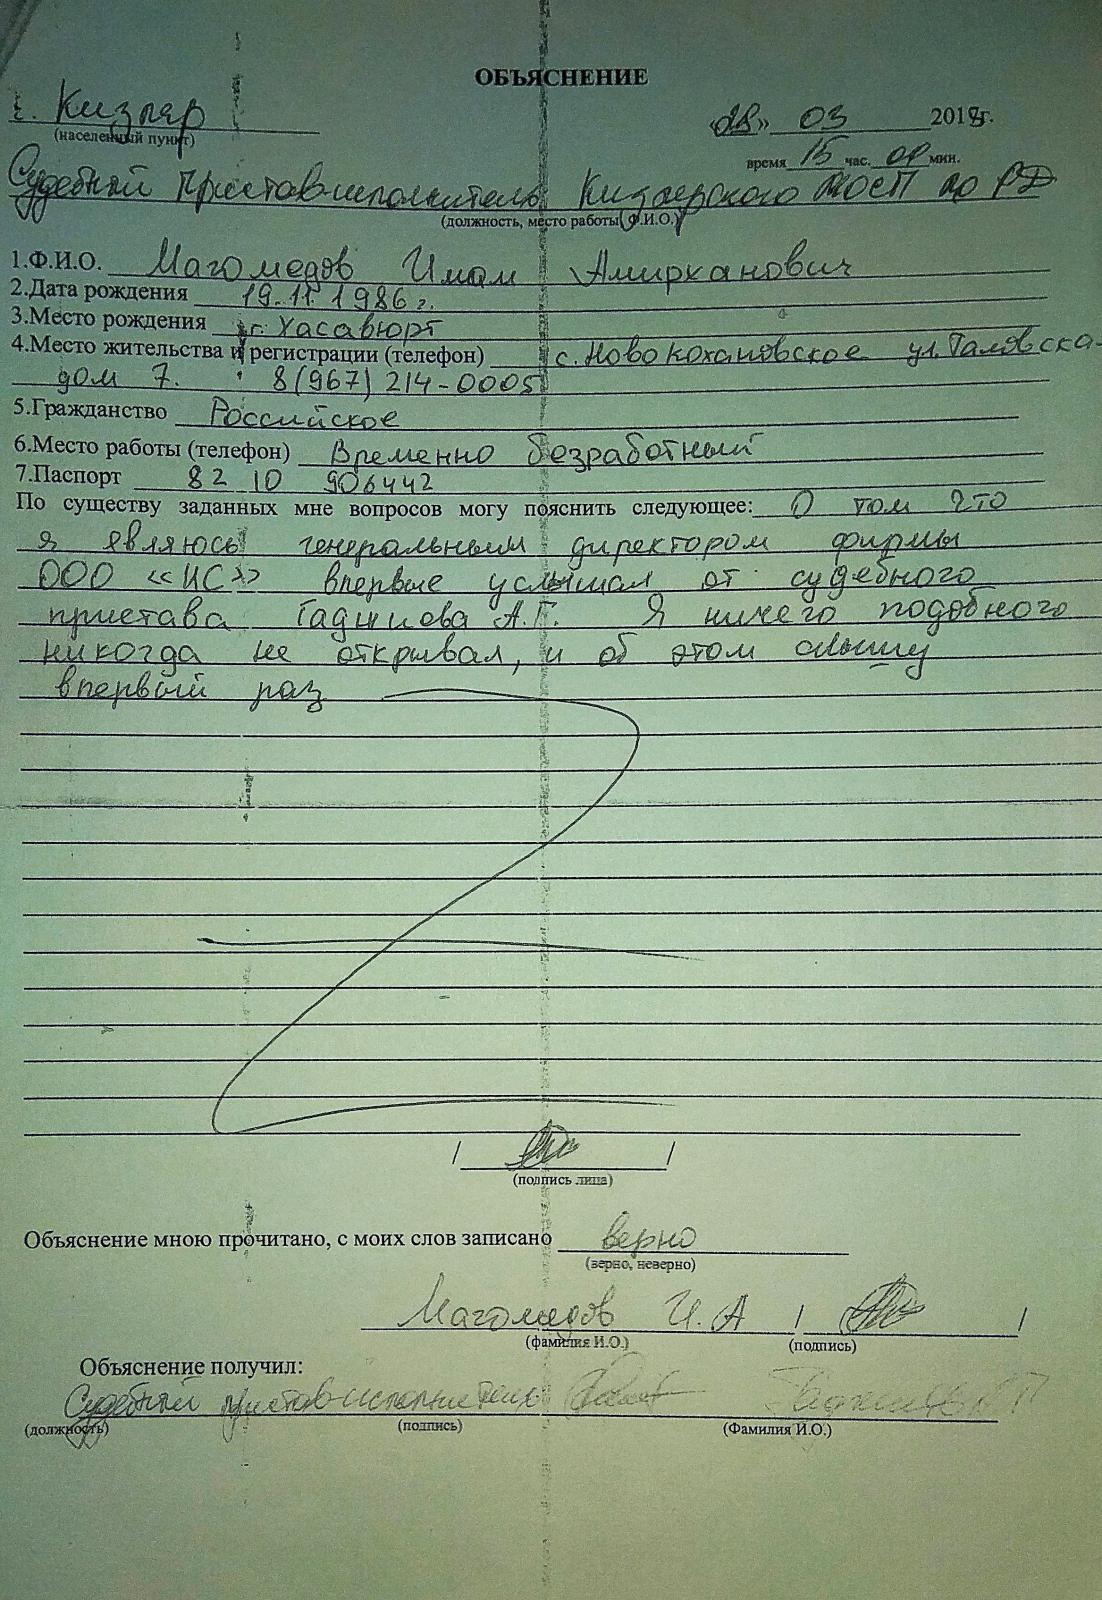 ОБЪЯСНЕНИЕ
г. Кизляр
(населенный пункт)
«28» 03 2018г.
время 15 час. 00 мин.
Судебный пристав-исполнитель Кизлярского МОСП по РД
(должность, место работы, Ф.И.О.)
1.Ф.И.О. Магомедов Имам Амирханович
2.Дата рождения 19.11.1986г.
3.Место рождения г. Хасавюрт
4.Место жительства и регистрации (телефон) с. Новокохановское ул. Таловска-
дом 7. 8(967) 214-0005
5.Гражданство Российское
6.Место работы (телефон) Временно безработный
7.Паспорт 82 10 906442
По существу заданных мне вопросов могу пояснить следующее: О том что
я являюсь генеральным директором фирмы
ООО «ИС» впервые услышал от судебного
пристава Гаджиова А.Г. Я ничего подобного
никогда не открывал, и об этом слышу
впервый раз
/ /
(подпись лица)
Объяснение мною прочитано, с моих слов записано верно
(верно, неверно)
Магомедов И.А / /
(фамилия И.О.) (подпись)
Объяснение получил:
Судебный пристав-исполнитель
(должность) (подпись) (Фамилия И.О.)